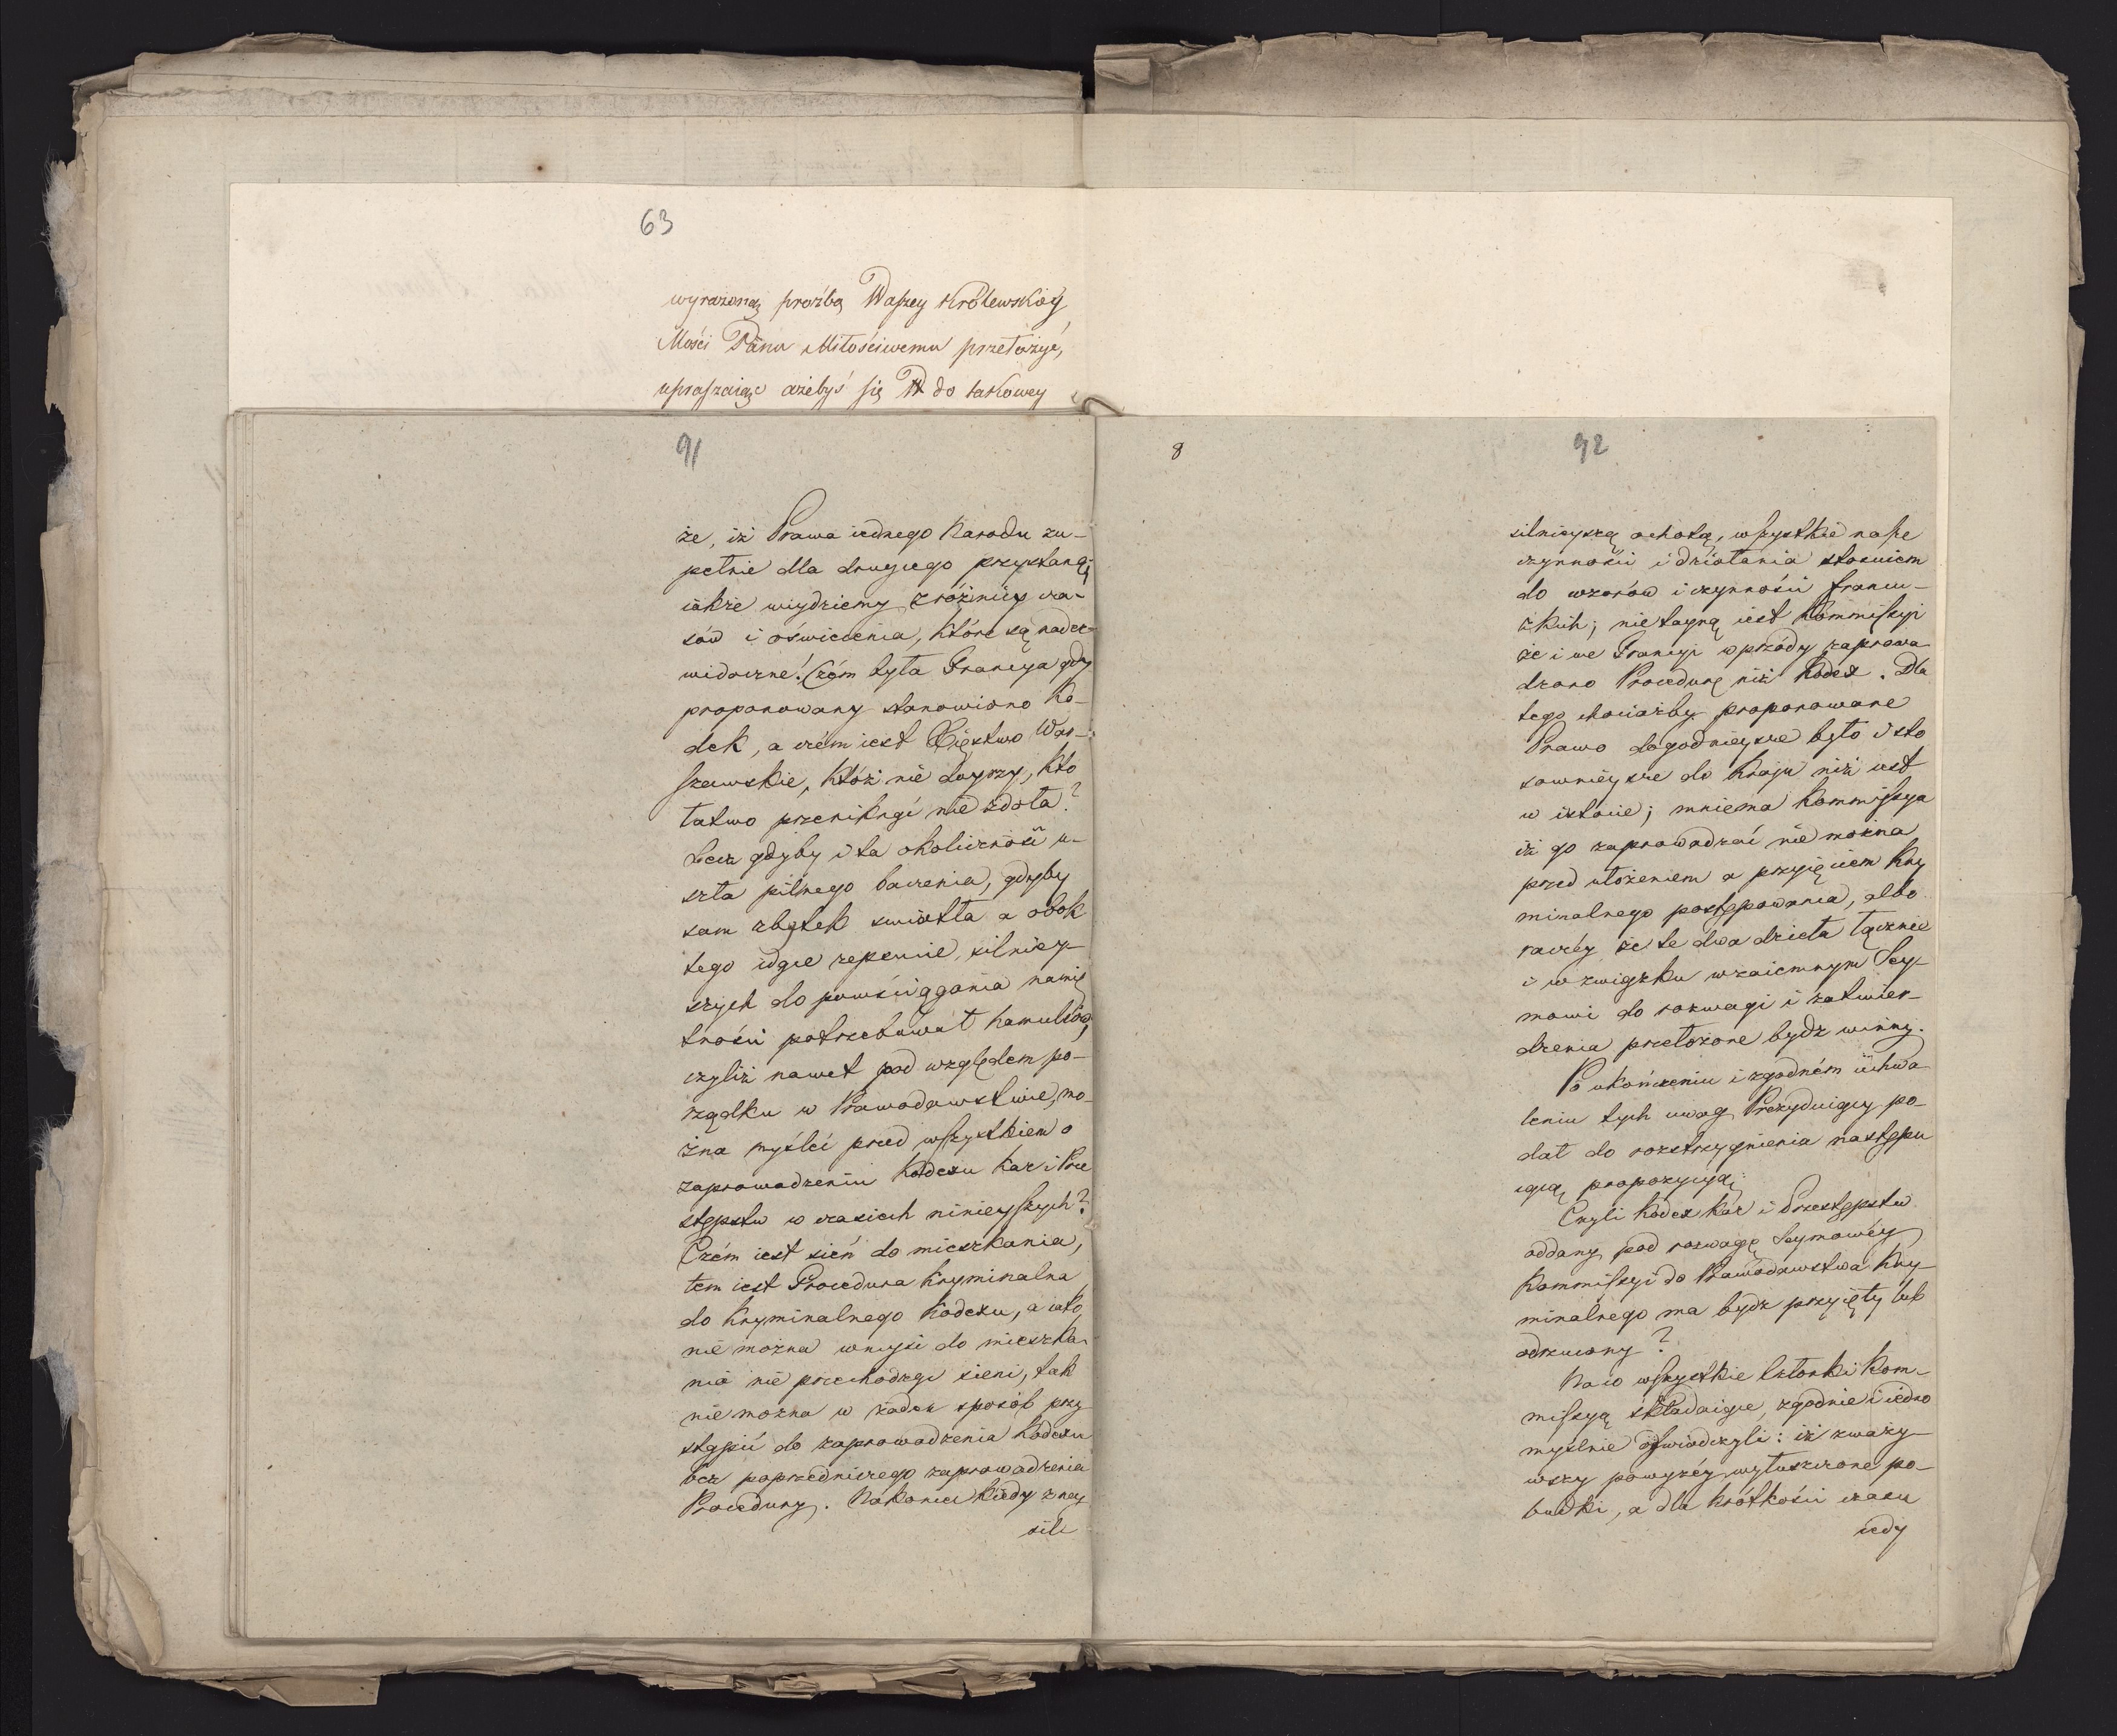 63
wyrażoną prozbą Waszey Królewskiéy
Mości Panu Miłościwemu przełożyć,
upraszaiąc ażebyś się W do takowey
91
że, iż Prawa iednego Narodu zu-
pełnie dla drugiego przystaną;
iakże wiydziemy z różnicy cza-
sów i oświecenia, które są nader
widoczne! Czém była Francya gdy
proponowany stanowiono Ko-
dek, a czém iest Xięstwo War-
szawskie, któż nie doyrzy, kto
łatwo przeniknąć nie zdoła?
Lecz gdyby i ta okoliczność u-
szła pilnego baczenia, gdyby
sam zbytek swiatła a obok
tego idące zepsucie, silniey-
szych do powściągania namię
tności potrzebował hamulców,
czyliż nawet pod względem po-
rządku w Prawodawstwie, mo-
żna myśleć przed wszystkiem o
zaprowadzeniu Kodexu Kar i Prze
stępstw w czasiech ninieyszych?
Czém iest sień do mieszkania,
tem iest Procedura Kryminalna
do Kryminalnego Kodexu, a iako
nie można wnyść do mieszka-
nia nie przechodząc sieni, tak
nie można w żaden sposób przy
stąpić do zaprowadzenia Kodexu
bez poprzedniczego zaprowadzenia
Procedury. Nakoniec kiedy z nay
sil
8
92
silnieyszą ochotą, wszystkie nasze
czynności i działania stosuiem
do wzorów i czynności francu-
zkich; nie tayną iest Kommissyi
że i we Francyi wprzódy zaprowa
dzono Procedurę niż Kodex. Dla
tego chociażby proponowane
Prawo łagodnieysze było i sto
sownieysze do Kraju niż iest
w istocie; mniema Kommissya
iż go zaprowadzać nie można
przed ułożeniem a przyięciem Kry
minalnego postępowania, albo
raczéy że te dwa dzieła łącznie
i w związku wzaiemnym Sey-
mowi do rozwagi i zatwier-
dzenia przełożone bydź winny.
Po ukończeniu i zgodném uchwa
leniu tych uwag Prezyduiący po-
dał do rozstrzygnienia następu
iącą propozycyią:
Czyli Kodex Kar i Przestępstw
oddany pod rozwagę Seymowéy
Kommissyi do Prawodawstwa Kry-
minalnego ma bydź przyięty lub
odrzucony?
Na co wszystkie Członki Kom-
missyą składaiące, zgodnie i iedno
myślnie oświadczyli: iż zważy-
wszy powyżéy wyłuszczone po-
budki, a dla krótkości czasu
iedy